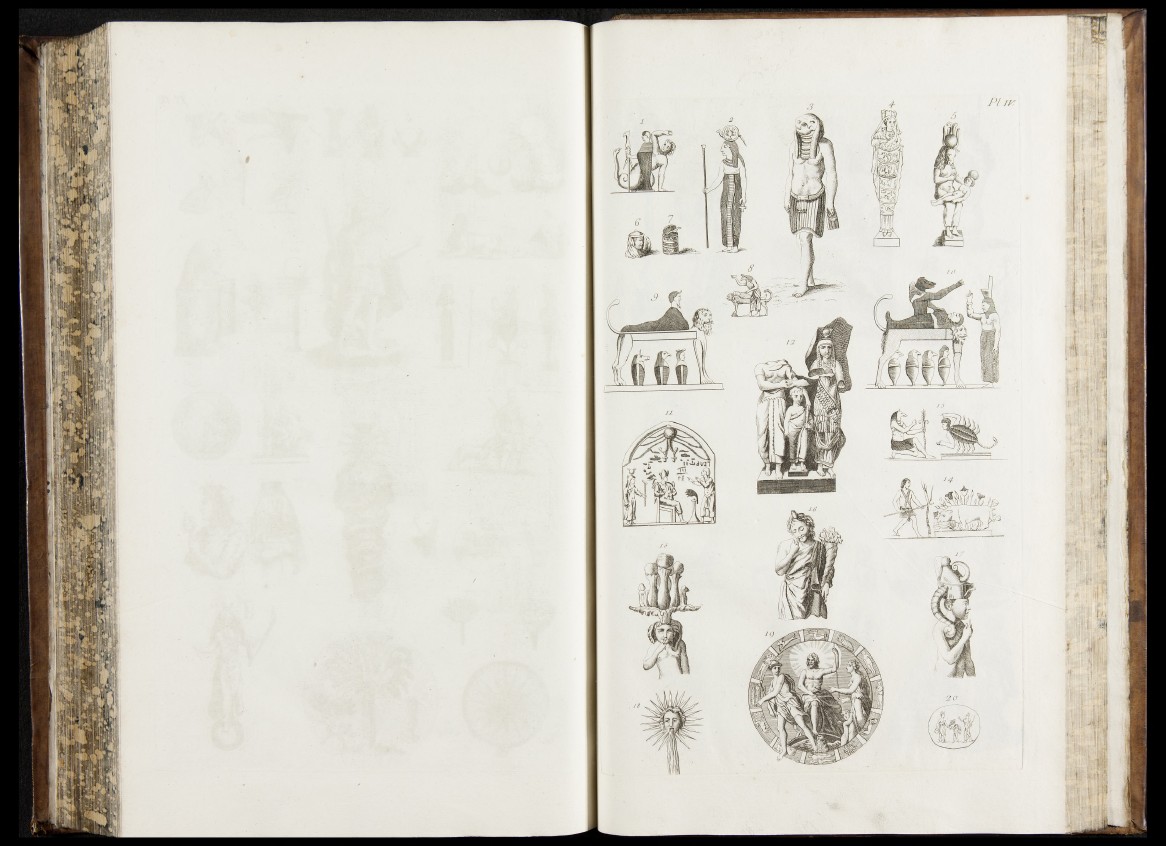 Pl. IV.
1
2
3
4
5
6
7
8
9
10
11
12
13
14
16
17
18
19
20